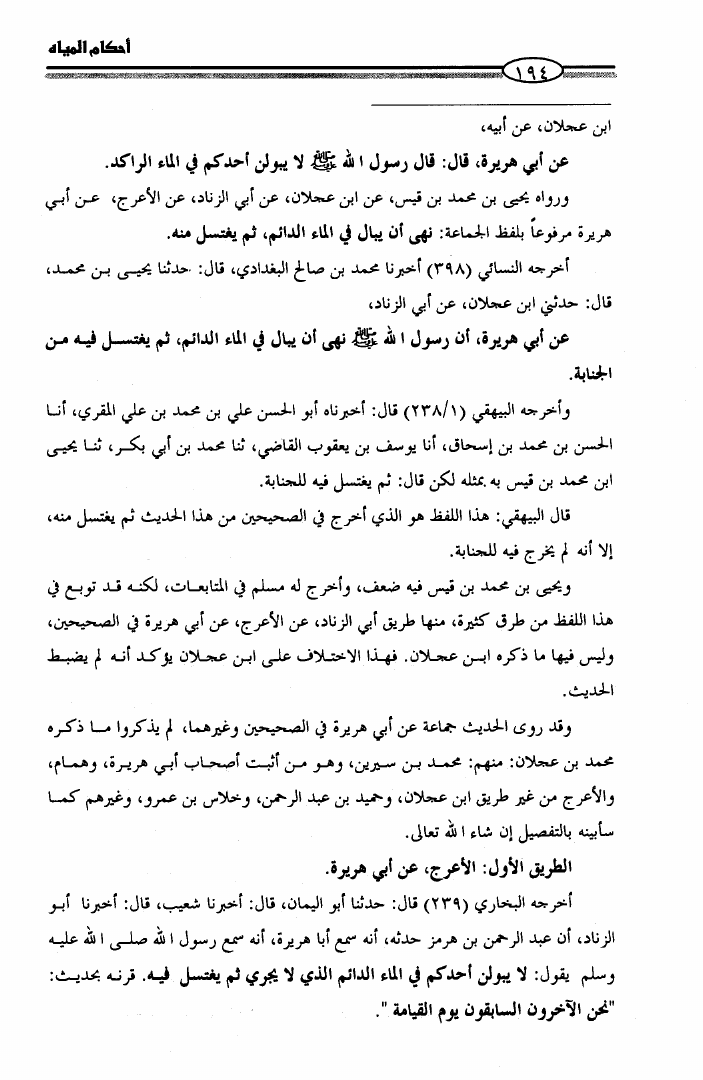 أحكام المياه
١٩٤
ابن عجلان، عن أبيه،
عن أبي هريرة، قال: قال رسول الله ﷺ لا يبولن أحدكم في الماء الراكد.
ورواه يحيى بن محمد بن قيس، عن ابن عجلان، عن أبي الزناد، عن الأعرج، عن أبي
هريرة مرفوعاً بلفظ الجماعة: نهى أن يبال في الماء الدائم، ثم يغتسل منه.
أخرجه النسائي (٣٩٨) أخبرنا محمد بن صالح البغدادي، قال: حدثنا يحيى بن محمد،
قال: حدثني ابن عجلان، عن أبي الزناد،
عن أبي هريرة، أن رسول الله ﷺ نهى أن يبال في الماء الدائم، ثم يغتسل فيه من
الجنابة.
وأخرجه البيهقي (٢٣٨/١) قال: أخبرناه أبو الحسن علي بن محمد بن علي المقري، أنا
الحسن بن محمد بن إسحاق، أنا يوسف بن يعقوب القاضي، ثنا محمد بن أبي بكر، ثنا يحيى
ابن محمد بن قيس به بمثله لكن قال: ثم يغتسل فيه للجنابة.
قال البيهقي: هذا اللفظ هو الذي أخرج في الصحيحين من هذا الحديث ثم يغتسل منه،
إلا أنه لم يخرج فيه للجنابة.
ويحيى بن محمد بن قيس فيه ضعف، وأخرج له مسلم في المتابعات، لكنه قد توبع في
هذا اللفظ من طرق كثيرة، منها طريق أبي الزناد، عن الأعرج، عن أبي هريرة في الصحيحين،
وليس فيها ما ذكره ابن عجلان. فهذا الاختلاف على ابن عجلان يؤكد أنه لم يضبط
الحديث.
وقد روى الحديث جماعة عن أبي هريرة في الصحيحين وغيرهما، لم يذكروا ما ذكره
محمد بن عجلان: منهم: محمد بن سيرين، وهو من أثبت أصحاب أبي هريرة، وهمام،
والأعرج من غير طريق ابن عجلان، وحميد بن عبد الرحمن، وخلاس بن عمرو، وغيرهم كما
سأبينه بالتفصيل إن شاء الله تعالى.
الطريق الأول: الأعرج، عن أبي هريرة.
أخرجه البخاري (٢٣٩) قال: حدثنا أبو اليمان، قال: أخبرنا شعيب، قال: أخبرنا أبو
الزناد، أن عبد الرحمن بن هرمز حدثه، أنه سمع أبا هريرة، أنه سمع رسول الله صلى الله عليه
وسلم يقول: لا يبولن أحدكم في الماء الدائم الذي لا يجري ثم يغتسل فيه. قرنه بحديث:
"نحن الآخرون السابقون يوم القيامة ".